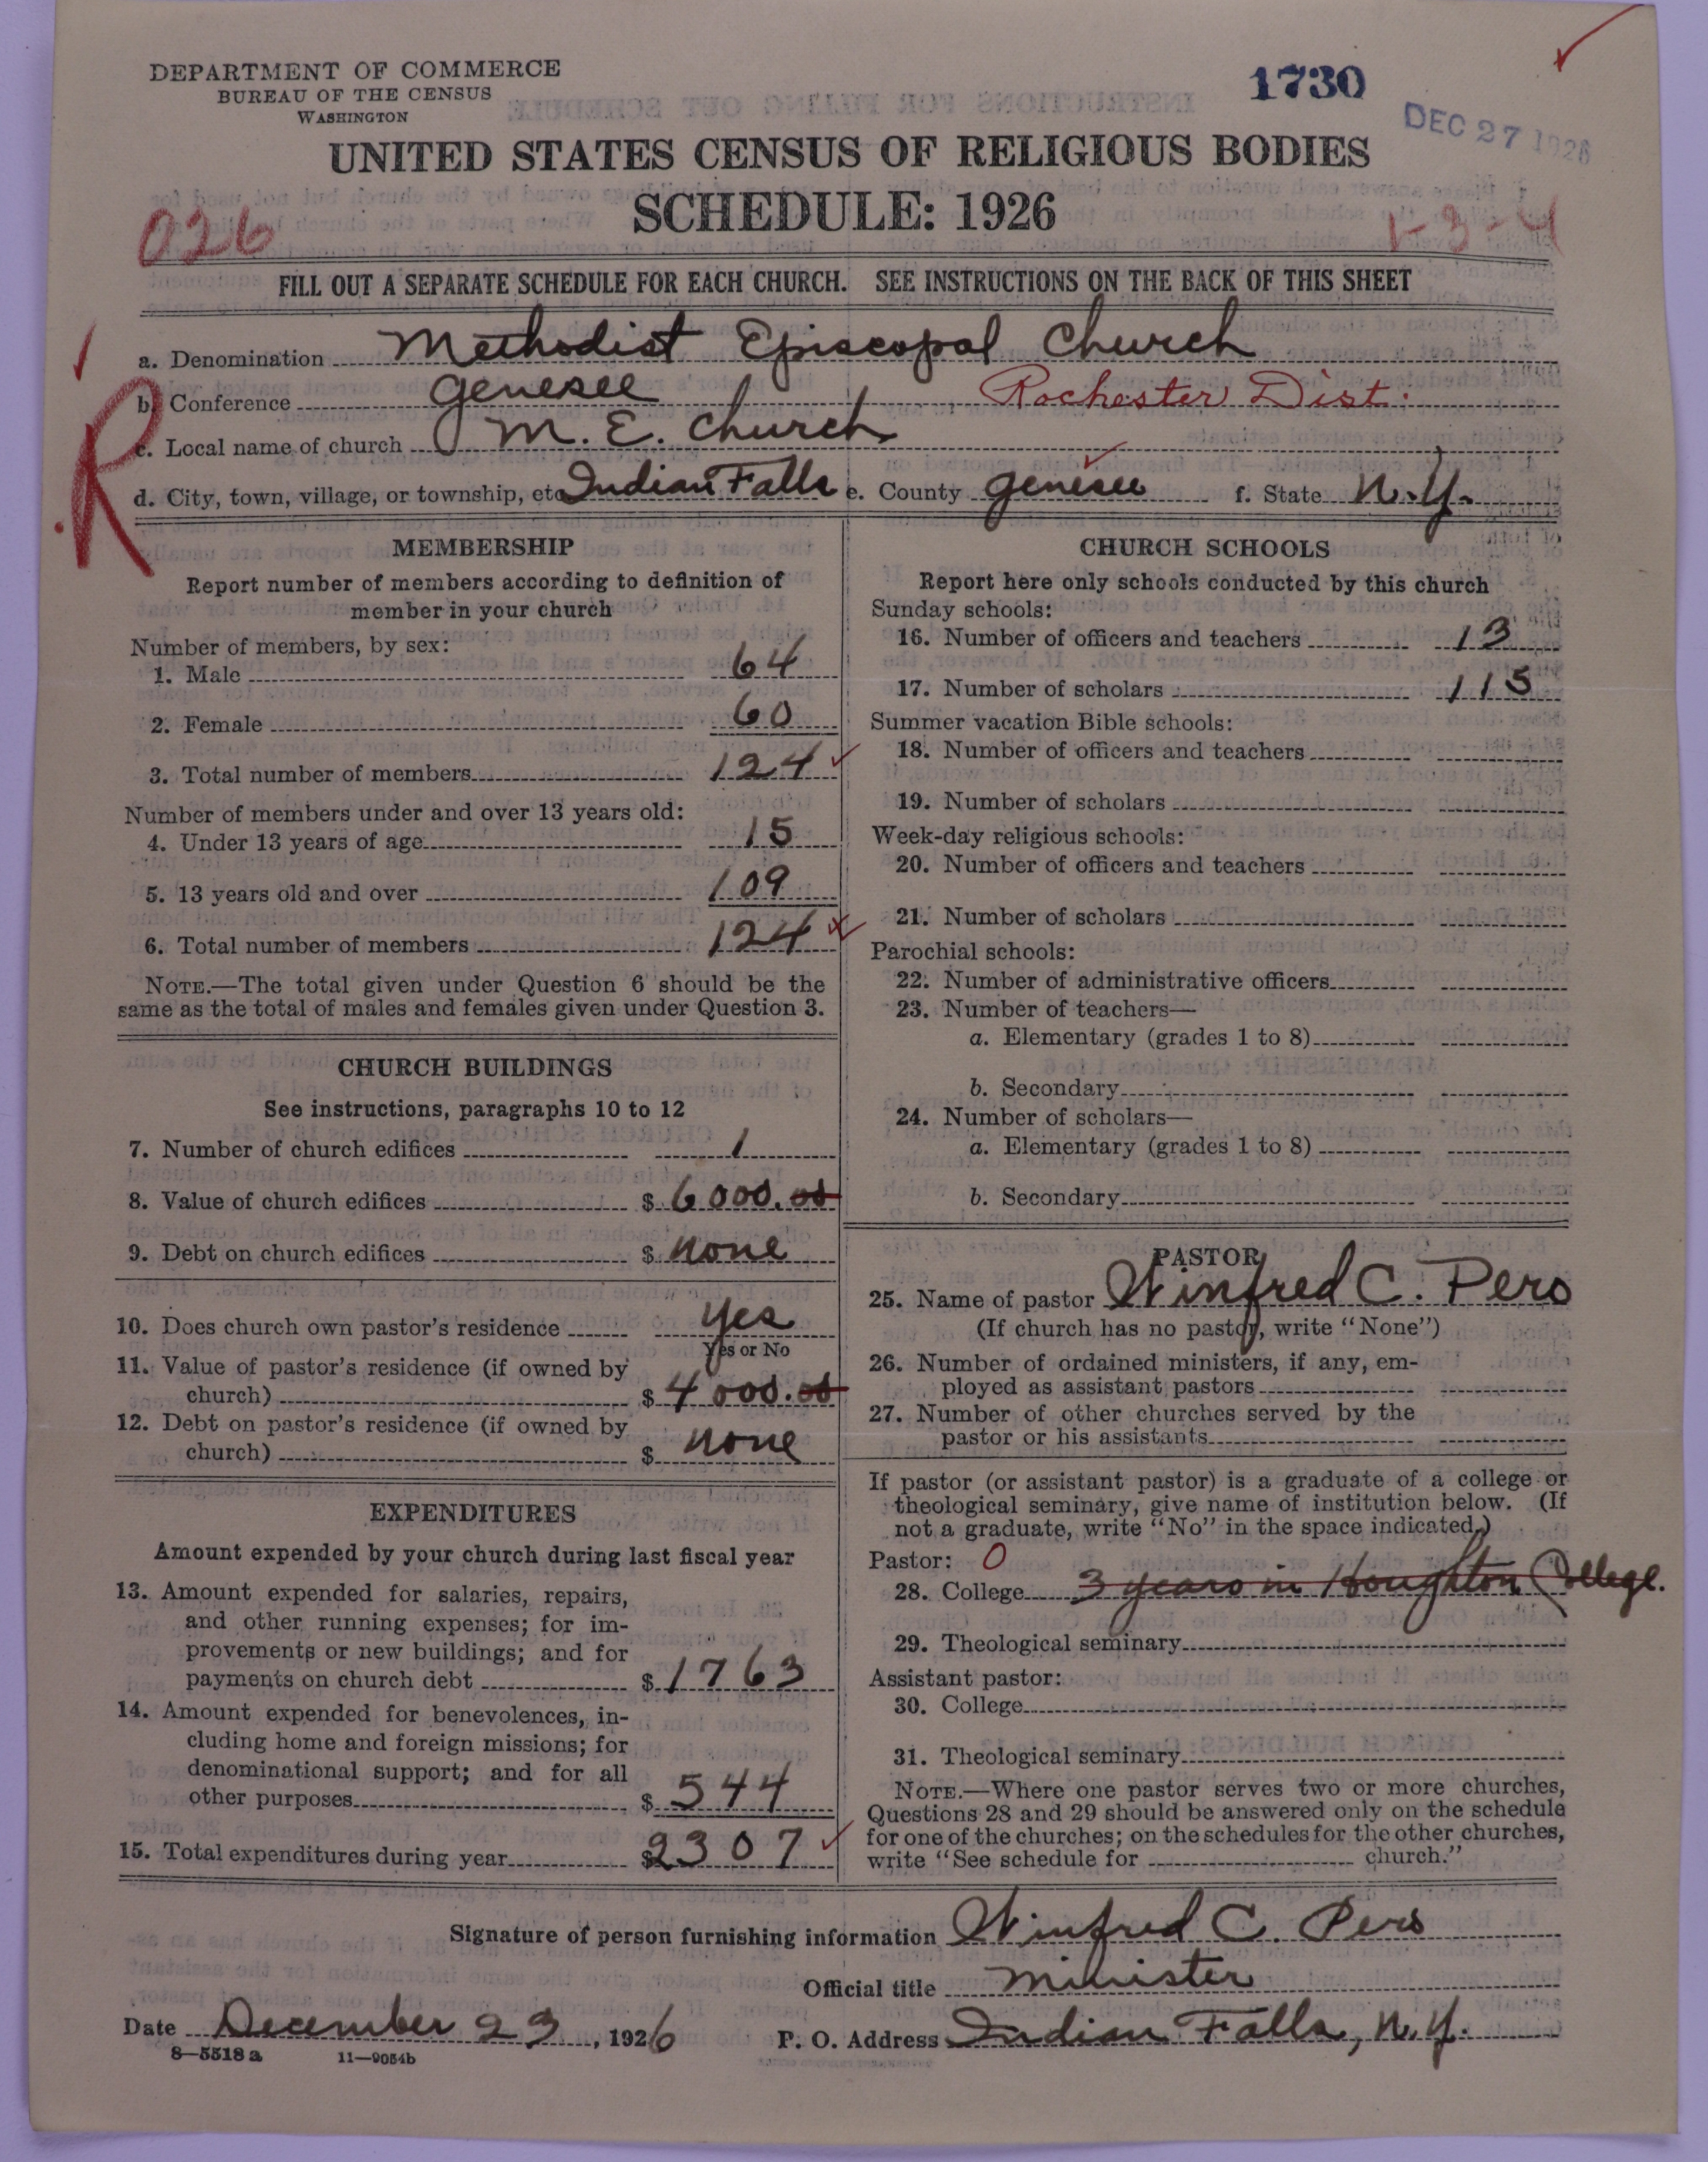 DEPARTMENT OF COMMERCE
BUREAU OF THE CENSUS
WASHINGTON
1730
DEC 27 1926
UNITED STATES CENSUS OF RELIGIOUS BODIES
SCHEDULE: 1926
026
1-3-4
FILL OUT A SEPARATE SCHEDULE FOR EACH CHURCH. SEE INSTRUCTIONS ON THE BACK OF THIS SHEET
R
a. Denomination Methodist Episcopal Church
b. Conference Genesee Rochester Dist.
c. Local name of church M. E. Church
d. City, town, village, or township, etc. Indian Falls e. County Genesee f. State N.Y.
MEMBERSHIP
Report number of members according to definition of
member in your church
Number of members, by sex:
1. Male 64
2. Female 60
3. Total number of members 124
Number of members under and over 13 years old:
4. Under 13 years of age 15
5. 13 years old and over 109
6. Total number of members 124
NOTE.—The total given under Question 6 should be the
same as the total of males and females given under Question 3.
CHURCH BUILDINGS
See instructions, paragraphs 10 to 12
7. Number of church edifices 1
8. Value of church edifices $ 6000.00
9. Debt on church edifices $ none
10. Does church own pastor's residence yes
Yes or No
11. Value of pastor's residence (if owned by
church) $ 4000.00
12. Debt on pastor's residence (if owned by
church) $ none
EXPENDITURES
Amount expended by your church during last fiscal year
13. Amount expended for salaries, repairs,
and other running expenses; for im-
provements or new buildings; and for
payments on church debt $ 1763
14. Amount expended for benevolences, in-
cluding home and foreign missions; for
denominational support; and for all
other purposes $ 544
15. Total expenditures during year $ 2307
CHURCH SCHOOLS
Report here only schools conducted by this church
Sunday schools:
16. Number of officers and teachers 13
17. Number of scholars 115
Summer vacation Bible schools:
18. Number of officers and teachers
19. Number of scholars
Week-day religious schools:
20. Number of officers and teachers
21. Number of scholars
Parochial schools:
22. Number of administrative officers
23. Number of teachers—
a. Elementary (grades 1 to 8)
b. Secondary
24. Number of scholars—
a. Elementary (grades 1 to 8)
b. Secondary
PASTOR
25. Name of pastor Winfred C. Pero
(If church has no pastor, write "None")
26. Number of ordained ministers, if any, em-
ployed as assistant pastors
27. Number of other churches served by the
pastor or his assistants
If pastor (or assistant pastor) is a graduate of a college or
theological seminary, give name of institution below. (If
not a graduate, write "No" in the space indicated.)
Pastor: 0
28. College 3 years in Houghton College.
29. Theological seminary
Assistant pastor:
30. College
31. Theological seminary
NOTE.—Where one pastor serves two or more churches,
Questions 28 and 29 should be answered only on the schedule
for one of the churches; on the schedules for the other churches,
write "See schedule for church."
Signature of person furnishing information Winfred C. Pero
Official title Minister
Date December 23, 1926 P. O. Address Indian Falls, N.Y.
8—5518a 11—9054b